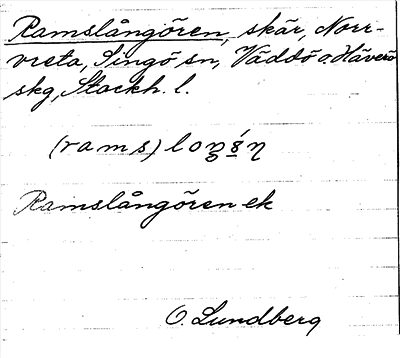 Ramslångören, skär, Norr-
vreta, Singö sn, Väddö o. Häverö
skg, Stockh. l.
(rams)loŋǵ̵η
Ramslångören ek
O. Lundberg